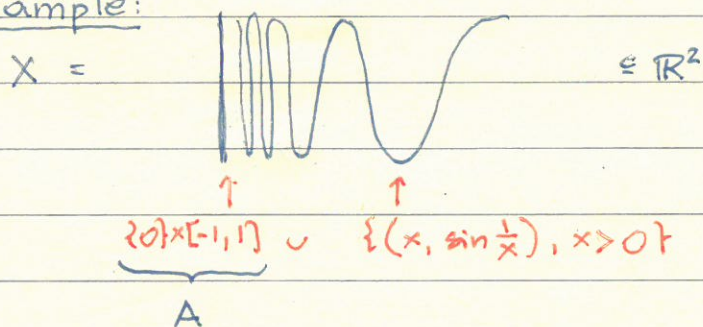 ample:
X = ⊆ ℝ²
↑ ↑
{0}×[-1,1] ∪ {(x, sin 1/x), x>0}
A